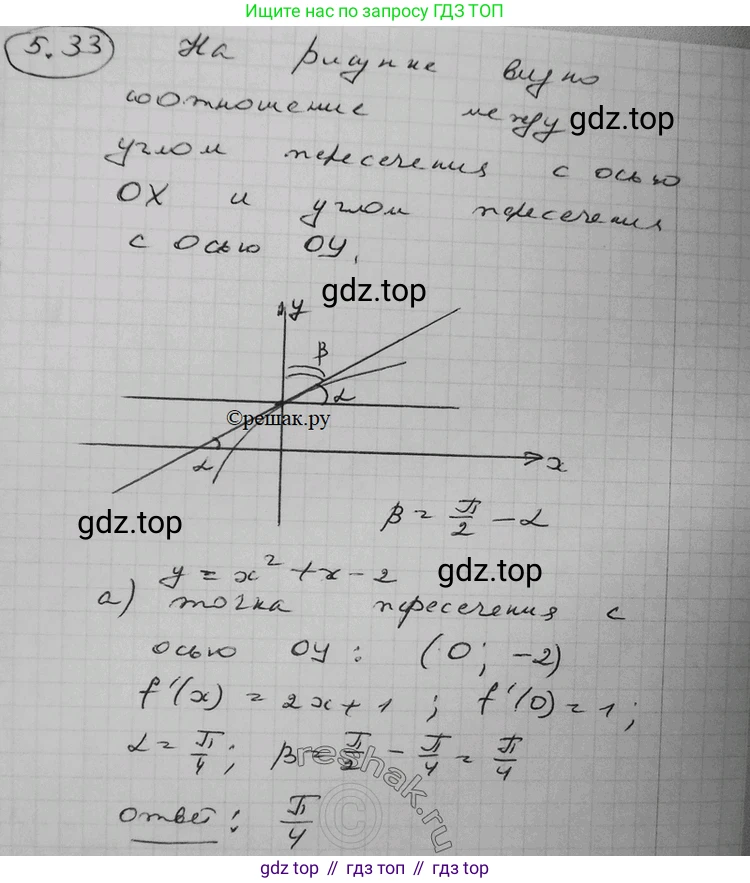 ответы по запросу ГДЗ ТОП
5.33 На рисунке видно
соотношение между
gdz.top
углом пересечения с осью
OX и углом пересечения
с осью OY.
gdz.top
y
β
α
©решак.ру
α
x
gdz.top
β = π/2 - α
y = x² + x - 2
gdz.top
а) точка пересечения с
осью OY: (0; -2)
f'(x) = 2x + 1; f'(0) = 1;
α = π/4; β = π/2 - π/4 = π/4
reshak.ru
©
Ответ: π/4
gdz top // гдз топ // gdz top